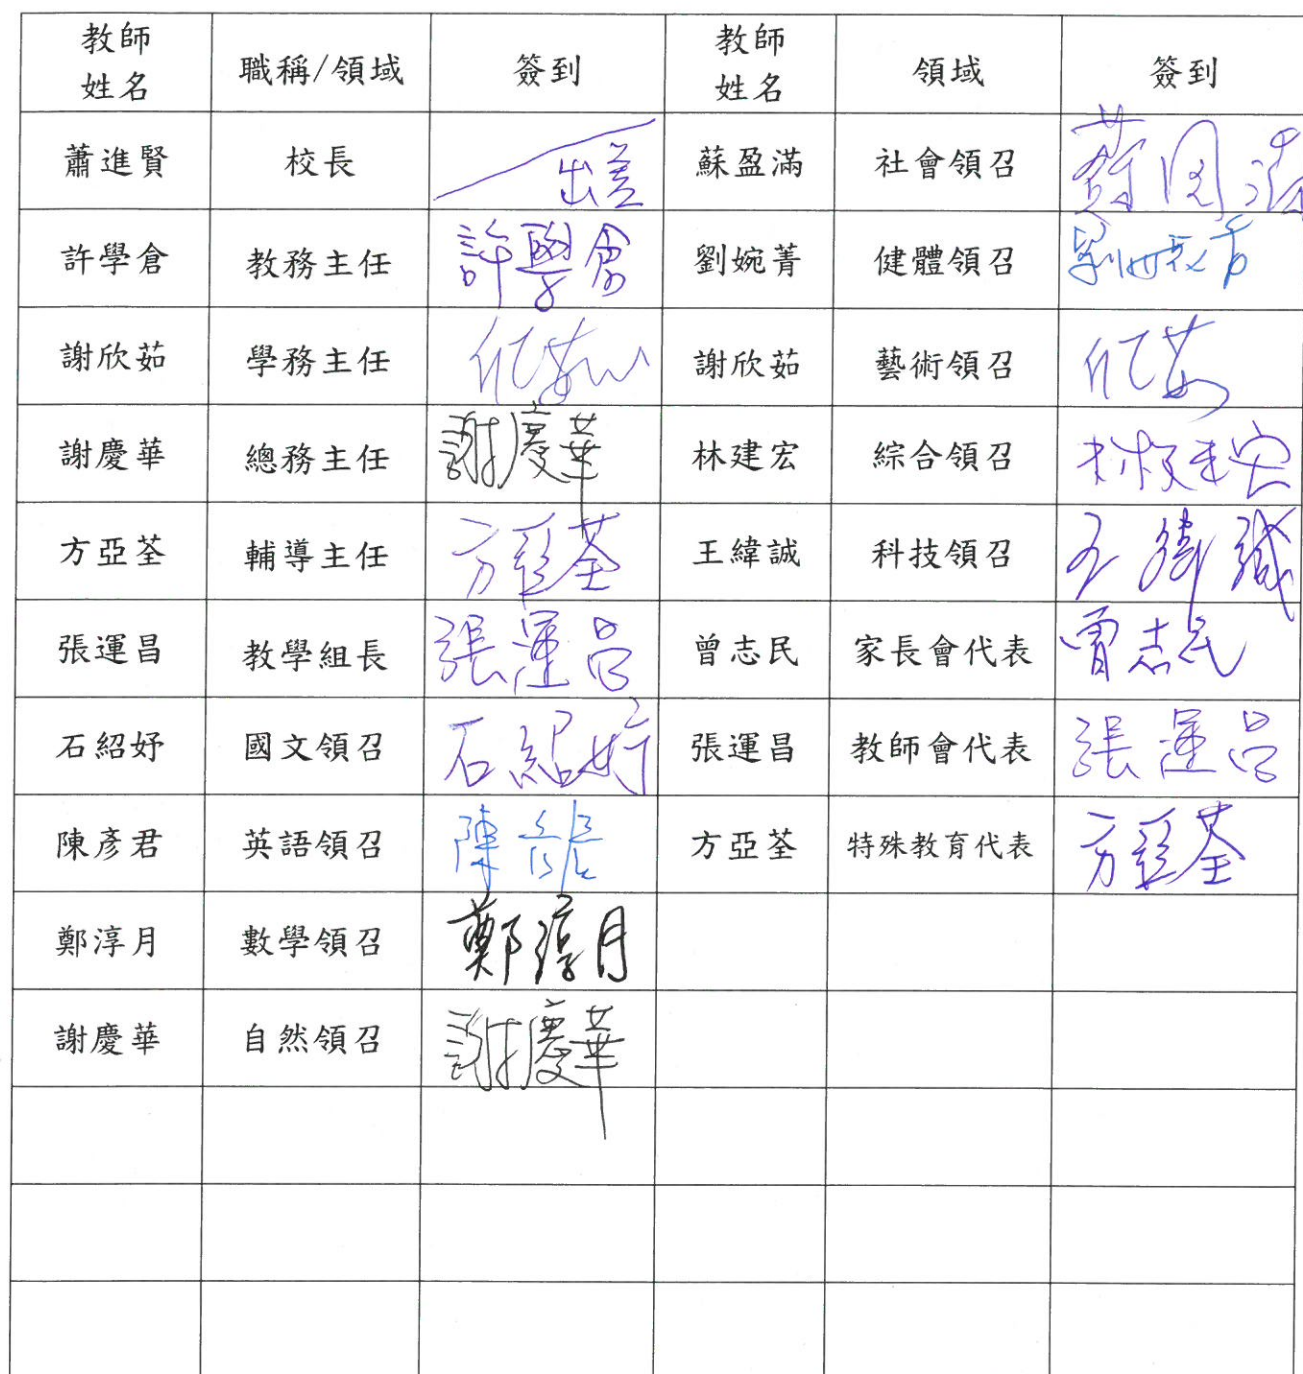 教師 姓名 職稱/領域 簽到 教師 姓名 領域 簽到
蕭進賢 校長 出差 蘇盈滿 社會領召
許學倉 教務主任 許學倉 劉婉菁 健體領召 劉婉菁
謝欣茹 學務主任 謝欣茹 藝術領召
謝慶華 總務主任 謝慶華 林建宏 綜合領召 林建宏
方亞荃 輔導主任 方亞荃 王緯誠 科技領召 王緯誠
張運昌 教學組長 張運昌 曾志民 家長會代表 曾志民
石紹妤 國文領召 石紹妤 張運昌 教師會代表 張運昌
陳彥君 英語領召 陳 方亞荃 特殊教育代表 方亞荃
鄭淳月 數學領召 鄭淳月
謝慶華 自然領召 謝慶華